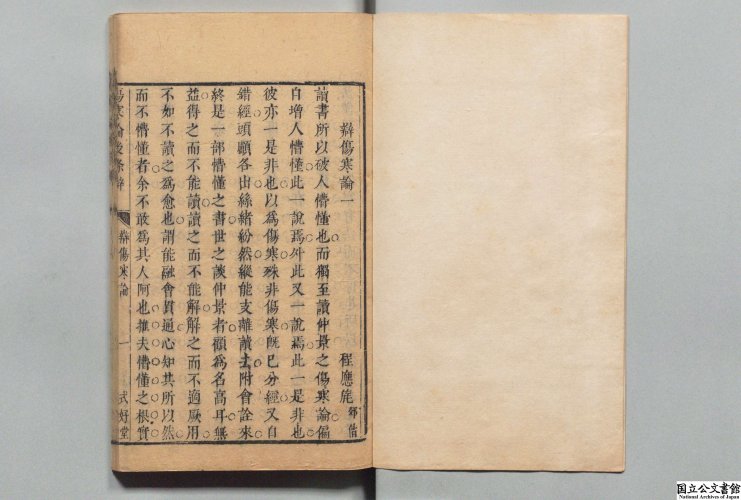 辯傷寒論一
程應旄 郊倩
讀書所以破人懵懂也而獨至讀仲景之傷寒論偏
自增人懵懂此一說焉外此又一說焉此一是非也
彼亦一是非也以爲傷寒殊非傷寒旣已分經又自
錯經頭顱各出絲緒紛然縱能支離讀去附會詮來
終是一部懵懂之書世之談仲景者顧爲名高耳無
益得之而不能讀讀之而不能解解之而不適厥用
不如不讀之爲愈也謂能融會貫通心知其所以然
而不懵懂者余不敢爲其人阿也推夫懵懂之根實
傷寒論後條辯 辯傷寒論 一 式好堂
国立公文書館
National Archives of Japan